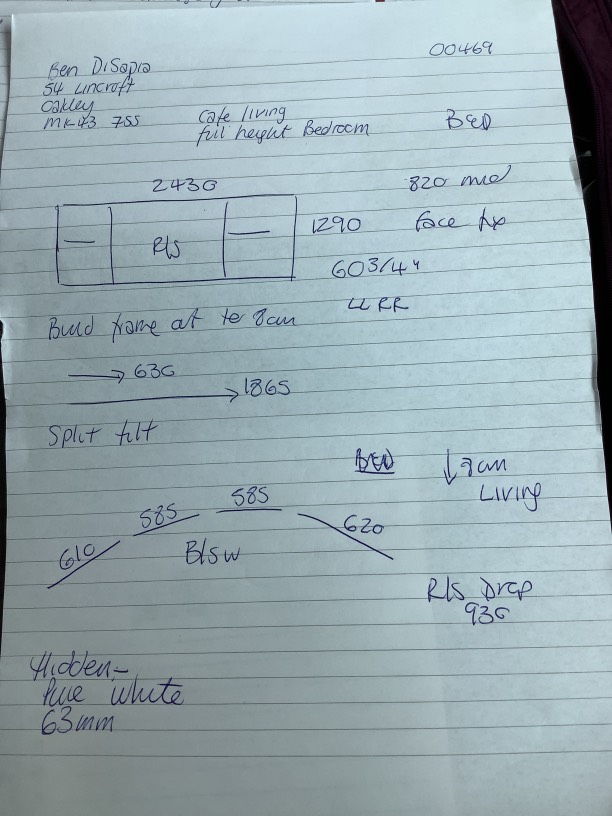 00469
Ben DiSapia
54 Lincroft
Oakley
MK43 7SS
Cafe living
full height Bedroom
BED
2430
820 mid
1290
Face fix
R/S
603/44
LLRR
Build frame at to 8cm
→ 630
→ 1865
Split tilt
BED
↓ 8cm
Living
610
585
585
620
B/S W
R/S Drop
930
Hidden -
Pure white
63mm